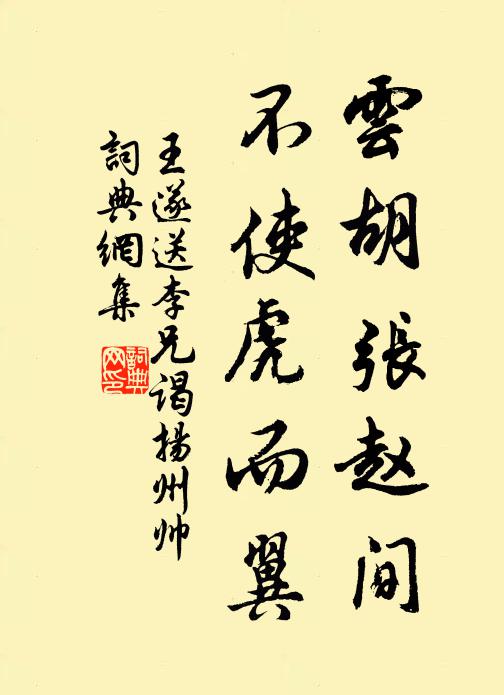 雲胡張赵间
不使虎而翼
王遂送李兄谒揚州帅
詞典網集
詞典网印